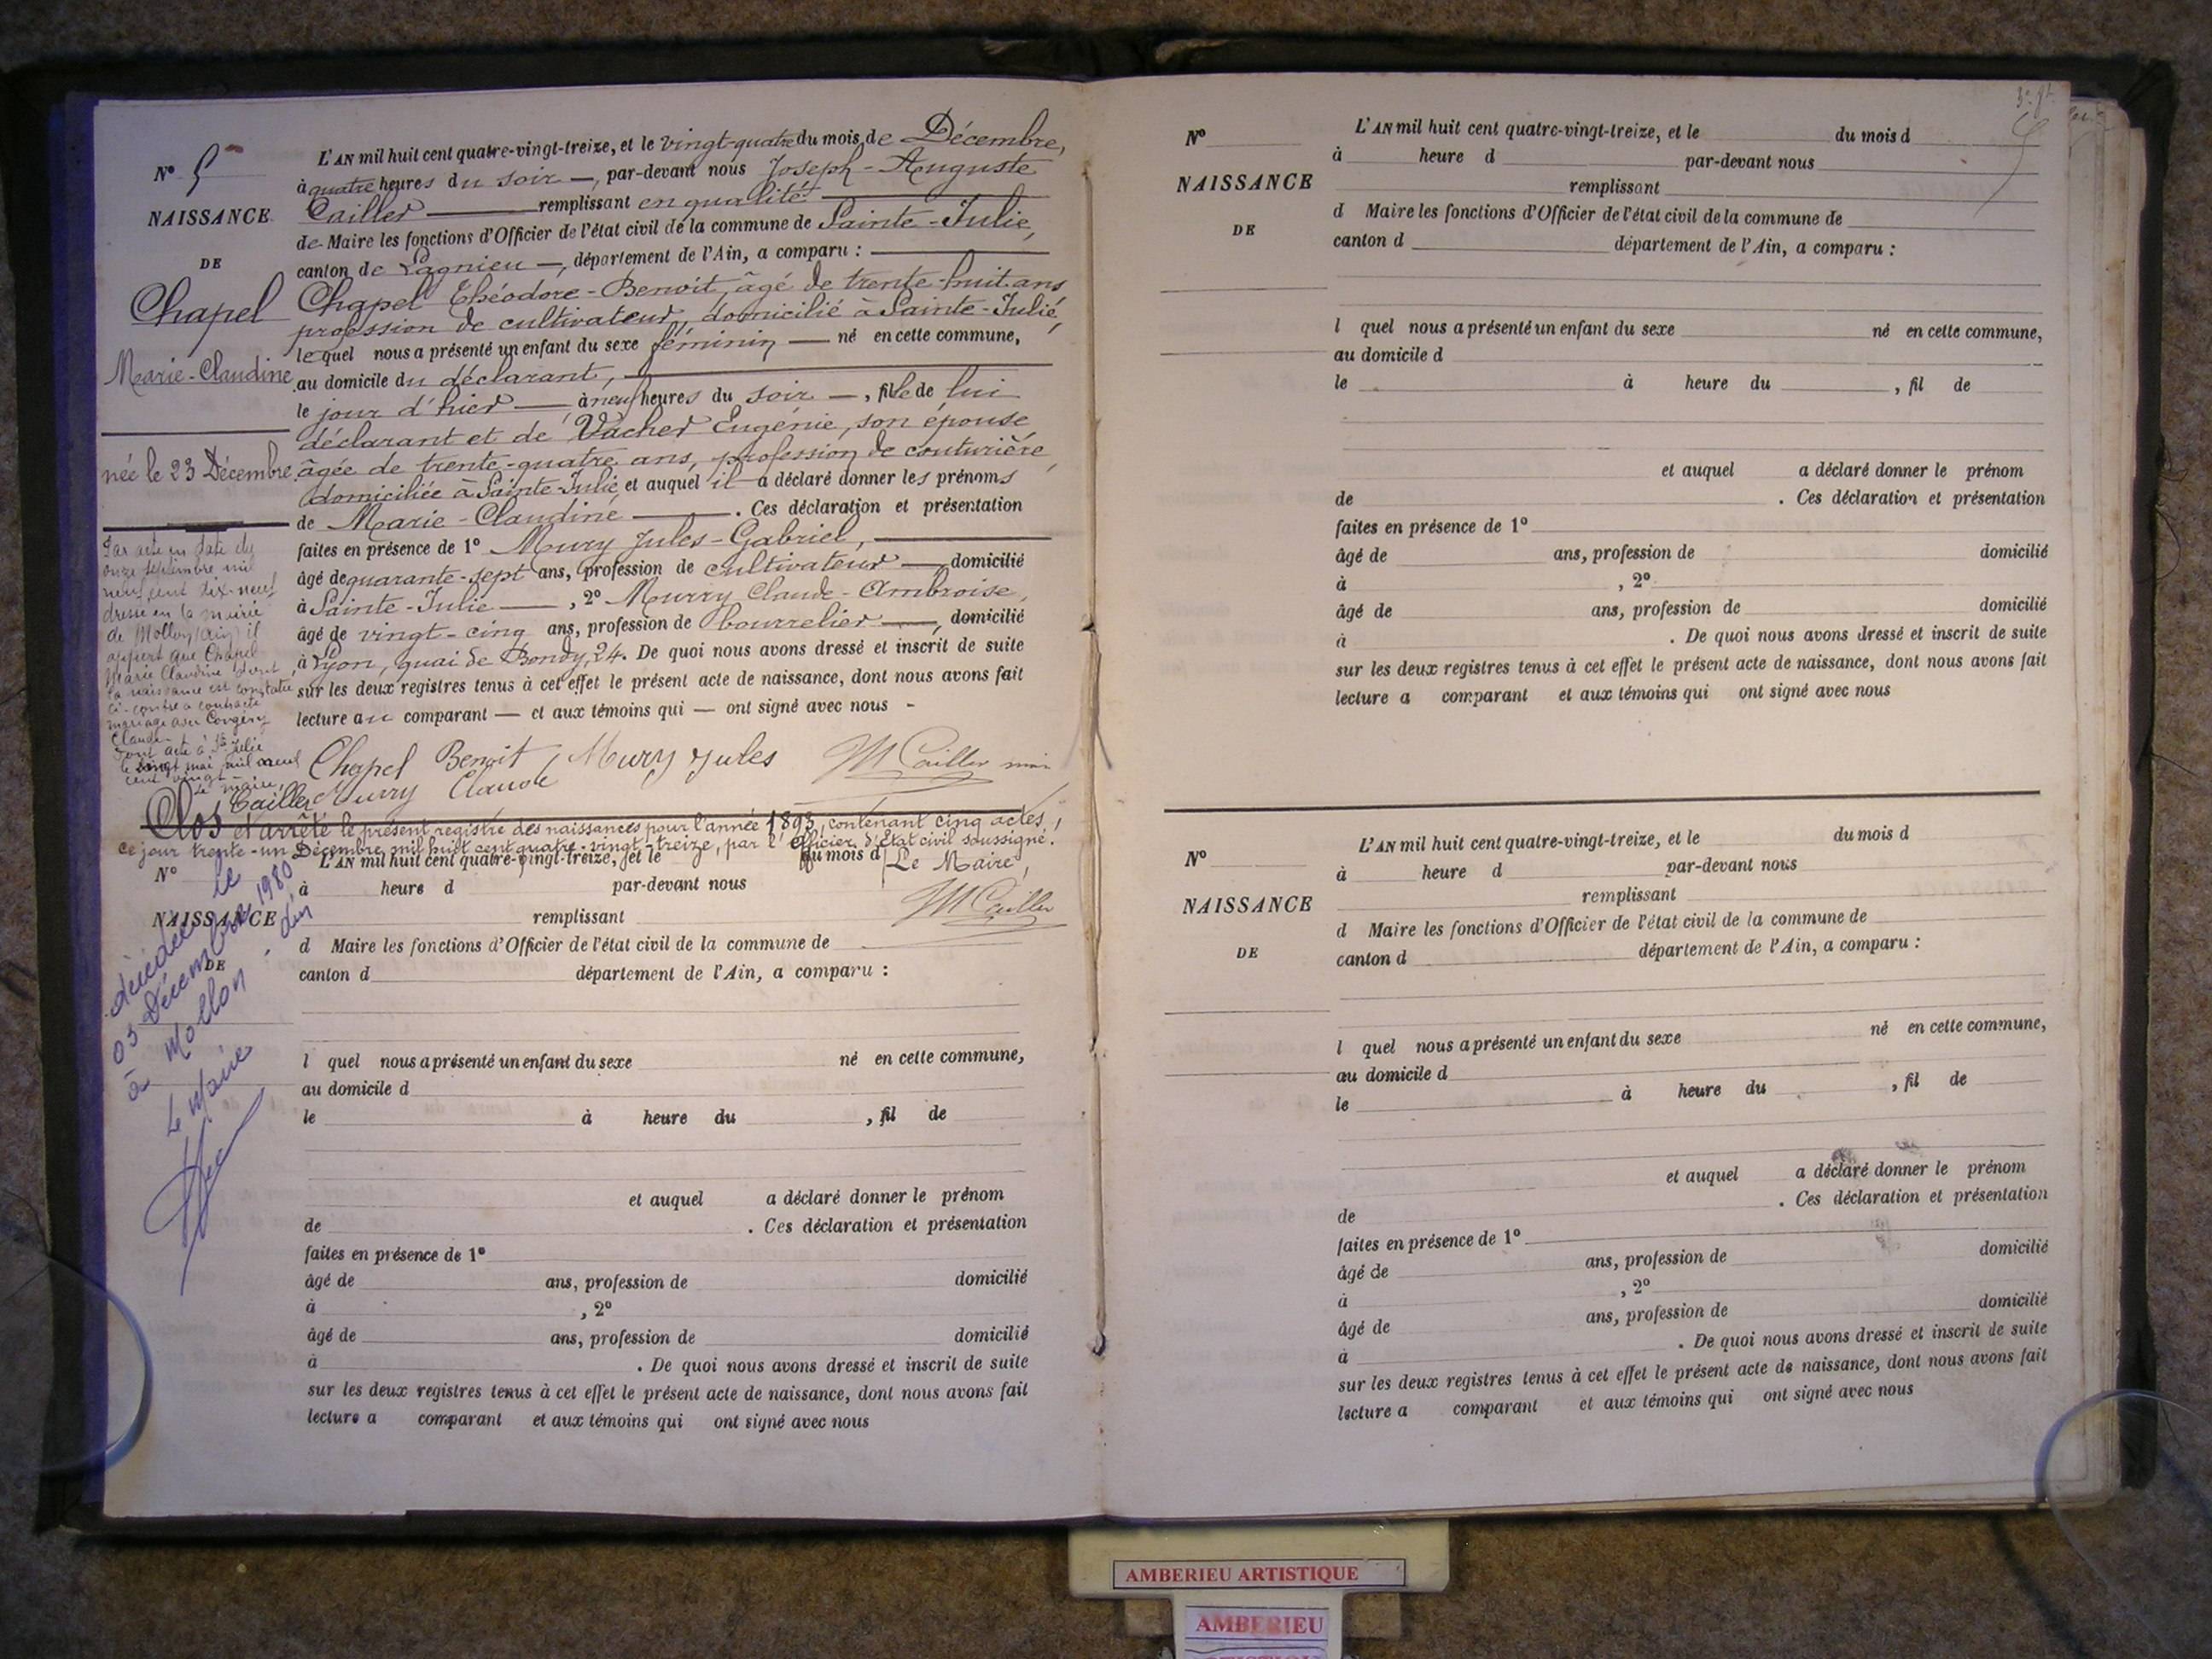 N° 5
NAISSANCE
DE
Chapel
Marie-Claudine
née le 23 Décembre
Par acte en date du
onze septembre mil
neuf cent dix-neuf
dressé en la mairie
de Mollon (Ain) il
appert que Chapel
Marie Claudine dont
la naissance est constatée
ci-contre a contracté
mariage avec
Claude
Dont acte à Ste Julie
le vingt mai mil neuf
cent vingt -
Le maire,
Cailler
L'AN mil huit cent quatre-vingt-treize, et le vingt-quatre du mois de Décembre,
à quatre heures du soir —, par-devant nous Joseph-Auguste
Cailler — remplissant en qualité
de Maire les fonctions d'Officier de l'état civil de la commune de Sainte-Julie,
canton de Lagnieu —, département de l'Ain, a comparu :
Chapel Théodore-Benoit, âgé de trente-huit ans
profession de cultivateur, domicilié à Sainte-Julie,
lequel nous a présenté un enfant du sexe féminin — né en cette commune,
au domicile du déclarant,
le jour d'hier — à neuf heures du soir —, fille de lui
déclarant et de Vacher Eugénie, son épouse
âgée de trente-quatre ans, profession de couturière,
domiciliée à Sainte-Julie et auquel il a déclaré donner les prénoms
de Marie-Claudine — . Ces déclaration et présentation
faites en présence de 1° Mury Jules-Gabriel,
âgé de quarante-sept ans, profession de cultivateur —, domicilié
à Sainte-Julie —, 2° Murry Claude-Ambroise,
âgé de vingt-cinq ans, profession de bourrelier —, domicilié
à Lyon, quai de Bondy, 24. De quoi nous avons dressé et inscrit de suite
sur les deux registres tenus à cet effet le présent acte de naissance, dont nous avons fait
lecture au comparant — et aux témoins qui — ont signé avec nous -
Chapel Benoit Mury Jules M Cailler
Murry Claude
Clos et arrêté le présent registre des naissances pour l'année 1893, contenant cinq actes,
ce jour trente-un Décembre mil huit cent quatre-vingt-treize, par l'Officier d'Etat civil soussigné.
Le Maire,
M Cailler
N°
NAISSANCE
DE
décédée le
03 Décembre 1980
à Mollon
Le Maire
L'AN mil huit cent quatre-vingt-treize, et le du mois d
à heure d par-devant nous
remplissant
d Maire les fonctions d'Officier de l'état civil de la commune de
canton d département de l'Ain, a comparu :
l quel nous a présenté un enfant du sexe né en cette commune,
au domicile d
le à heure du , fil de
et auquel a déclaré donner le prénom
de . Ces déclaration et présentation
faites en présence de 1°
âgé de ans, profession de domicilié
à , 2°
âgé de ans, profession de domicilié
à . De quoi nous avons dressé et inscrit de suite
sur les deux registres tenus à cet effet le présent acte de naissance, dont nous avons fait
lecture a comparant et aux témoins qui ont signé avec nous
N°
NAISSANCE
DE
L'AN mil huit cent quatre-vingt-treize, et le du mois d
à heure d par-devant nous
remplissant
d Maire les fonctions d'Officier de l'état civil de la commune de
canton d département de l'Ain, a comparu :
l quel nous a présenté un enfant du sexe né en cette commune,
au domicile d
le à heure du , fil de
et auquel a déclaré donner le prénom
de . Ces déclaration et présentation
faites en présence de 1°
âgé de ans, profession de domicilié
à , 2°
âgé de ans, profession de domicilié
à . De quoi nous avons dressé et inscrit de suite
sur les deux registres tenus à cet effet le présent acte de naissance, dont nous avons fait
lecture a comparant et aux témoins qui ont signé avec nous
N°
NAISSANCE
DE
L'AN mil huit cent quatre-vingt-treize, et le du mois d
à heure d par-devant nous
remplissant
d Maire les fonctions d'Officier de l'état civil de la commune de
canton d département de l'Ain, a comparu :
l quel nous a présenté un enfant du sexe né en cette commune,
au domicile d
le à heure du , fil de
et auquel a déclaré donner le prénom
de . Ces déclaration et présentation
faites en présence de 1°
âgé de ans, profession de domicilié
à , 2°
âgé de ans, profession de domicilié
à . De quoi nous avons dressé et inscrit de suite
sur les deux registres tenus à cet effet le présent acte de naissance, dont nous avons fait
lecture a comparant et aux témoins qui ont signé avec nous
AMBERIEU ARTISTIQUE
AMBERIEU